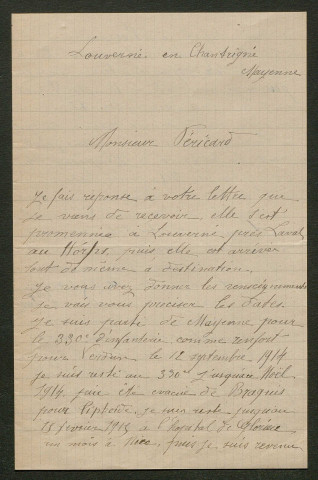 Louverné en Chantrigné
Mayenne
Monsieur Péricard
Je fais réponse à votre lettre que
je viens de recevoir elle s'est
promennée à Louverné près Laval
au Horps, puis elle est arrivée
tout de même à destination.
Je vous avez donner les renseignements
je vais vous préciser les dates.
Je suis parti de Mayenne pour
le 330e d'infanterie comme renfort
pour Verdun le 12 septembre 1914
je suis resté au 330e jusquau Noël
1914. puis évacué de
pour je suis resté jusquau
15 février 1915 à l'hôpital de
un mois à Nice, puis je suis revenu